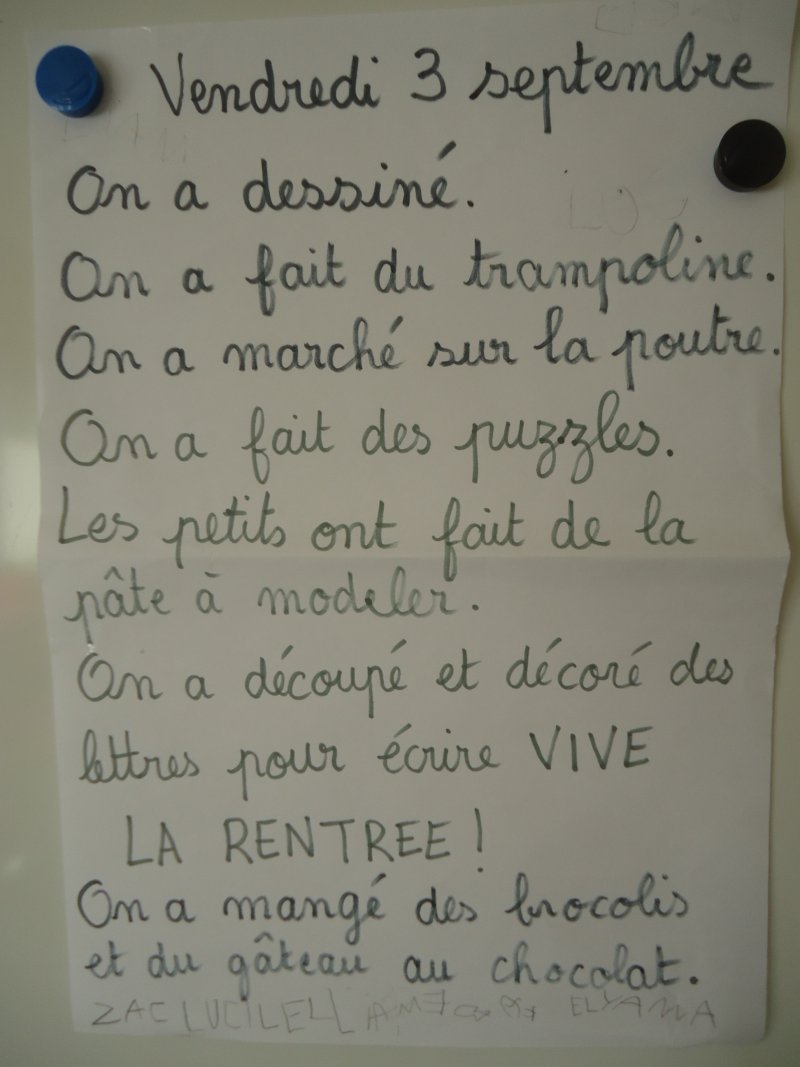 Vendredi 3 septembre
On a dessiné.
On a fait du trampoline.
On a marché sur la poutre.
On a fait des puzzles.
Les petits ont fait de la
pâte à modeler.
On a découpé et décoré des
lettres pour écrire VIVE
LA RENTREE !
On a mangé des brocolis
et du gâteau au chocolat.
ZAC LUCILE